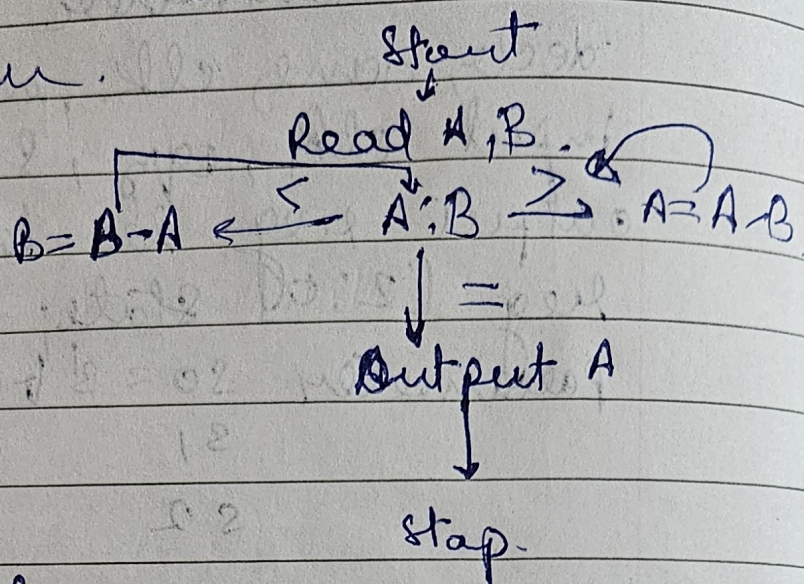 Start
Read A, B.
< >
B = B - A A : B A = A - B
=
Output A
Stop.